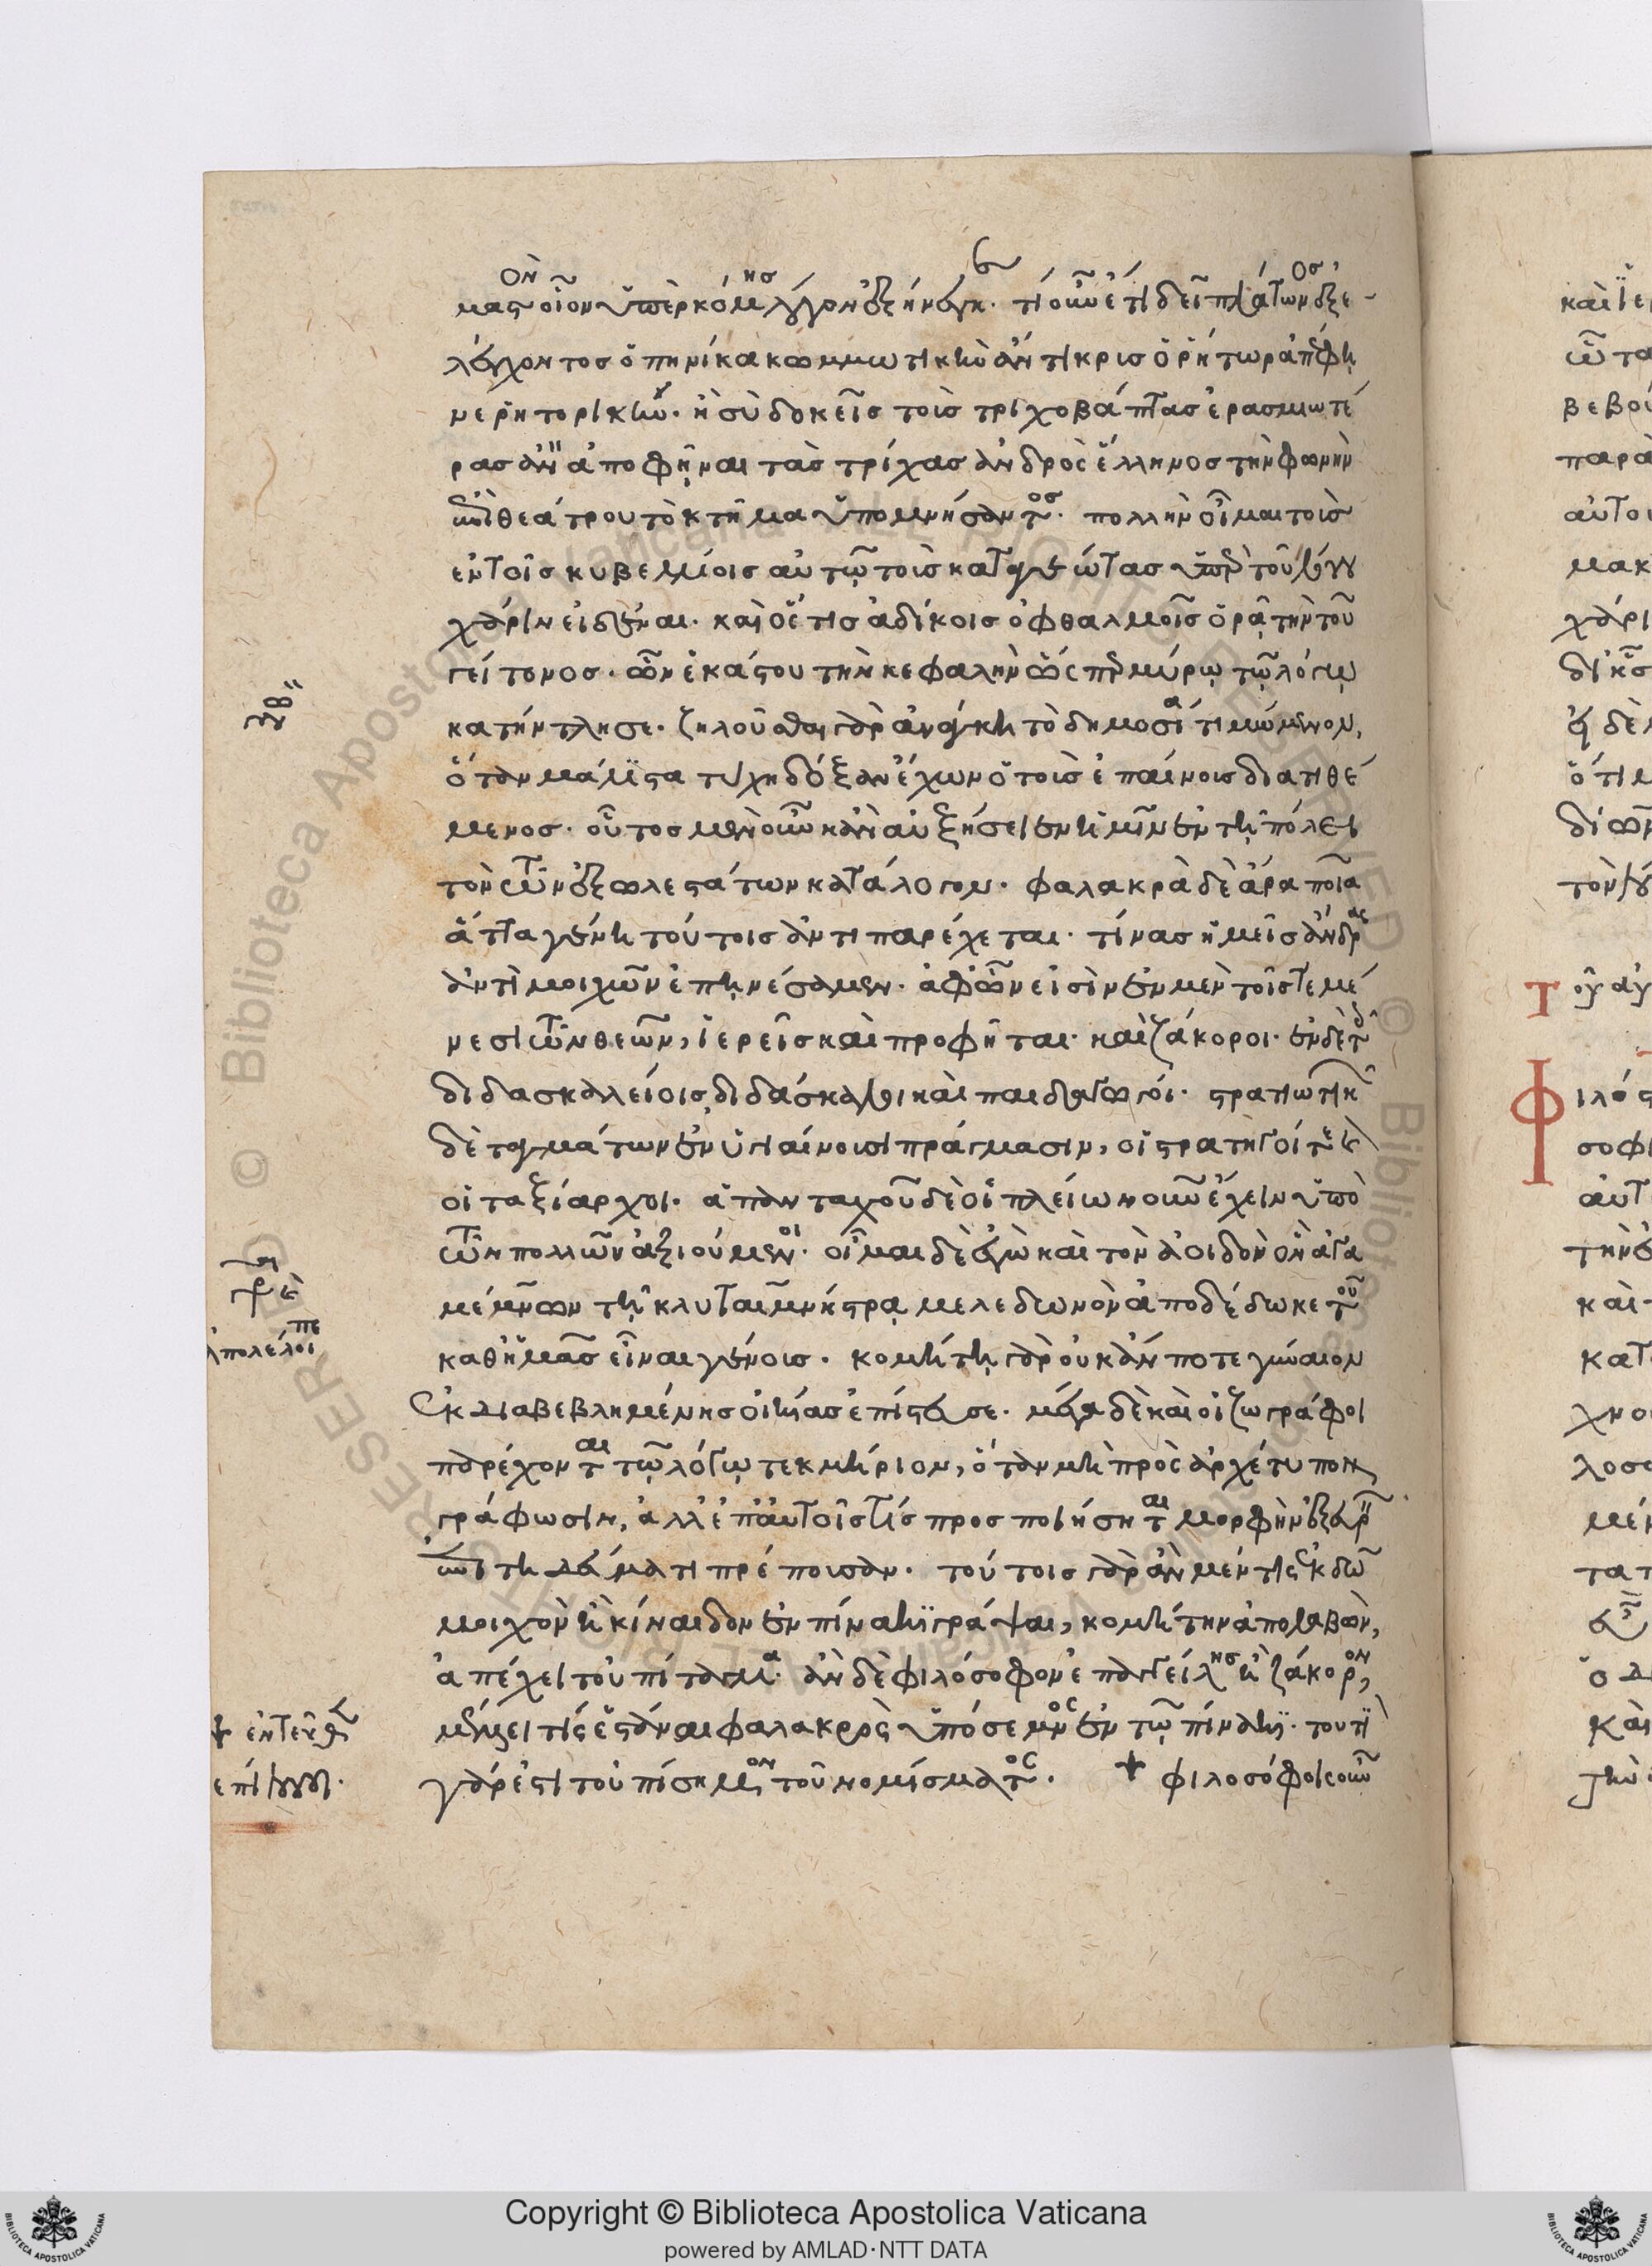 μας οἷον ὑπὲρ κόμης λόγον ἐξήνεγκ. τί οὖν ἔτι δεῖ πλάτωνος ἐξε-
λέγχοντος ὁπηνίκα κομμωτικὴν ἄντικρυσ ὁ ῥήτωρ ἀπέφη
νε ῥητορικήν. ἢ σὺ δοκεῖσ τοῖσ τριχοβάπτασ ἐρασμιωτέ
ρασ ἂν ἀποφῆναι τὰσ τρίχασ ἀνδρὸς ἕλληνοσ τὴν φωνὴν
ἐπὶ θεάτρου τὸ κτῆμα ὑπομνήσαντος. πολλὴν οἶμαι τοὺσ
ἐν τοῖσ κυβελίοισ αὐτῷ τοὺσ κατεαγότασ ὑπὲρ τοῦ λόγου
χάριν εἰδέναι. καὶ εἴ τισ ἀδίκοισ ὀφθαλμοῖσ ὁρᾷ τὴν τοῦ
γείτονοσ. ὧν ἑκάστου τὴν κεφαλὴν ὥσπερ μύρῳ τῷ λόγῳ
κατήντλησε. ζηλοῦσθαι γὰρ ἀνάγκη τὸ δημοσίᾳ τιμώμενον,
ὅταν μάλιστα τύχῃ δόξαν ἔχων ὁ τοῖσ ἐπαίνοισ διατιθέ
μενοσ. οὗτοσ μὲν οὖν κἂν αὐξήσειεν ἡμῖν ἐν τῇ πόλει
τὸν τῶν ἐξωλεστάτων κατάλογον. φαλακρὰ δὲ ἄρα ποῖα
ἄττα γένη τούτοισ ἀντιπαρέχεται. τίνασ ἡμεῖσ ἄνδρας
ἀντὶ μοιχῶν ἐπῃνέσαμεν. ἀφ' ὧν εἰσὶν ἐν μὲν τοῖσ τεμέ
νεσι τῶν θεῶν, ἱερεῖσ καὶ προφῆται. καὶ ζάκοροι. ἐν δὲ τοῖς
διδασκαλείοισ, διδάσκαλοι καὶ παιδαγωγοί. στρατιωτικῶν
δὲ ταγμάτων ἐν ὑγιαίνουσι πράγμασιν, οἱ στρατηγοί τε καὶ
οἱ ταξίαρχοι. ἁπανταχοῦ δὲ οἱ πλείω νοῦν ἔχειν ὑπὸ
τῶν πολλῶν ἀξιούμενοι. οἶμαι δὲ ἐγὼ καὶ τὸν ἀοιδὸν ὃν ἀγα
μέμνων τῇ κλυταιμνήστρᾳ μελεδωνὸν ἀποδέδωκε τοῦ
καθ' ἡμᾶσ εἶναι γένουσ. κομήτῃ γὰρ οὐκ ἄν ποτε γύναιον
ἐκ διαβεβλημένησ οἰκίασ ἐπίστευσε. μέγα δὲ καὶ οἱ ζωγράφοι
παρέχονται τῷ λόγῳ τεκμήριον, ὅταν μὴ πρὸς ἀρχέτυπον
γράφωσιν, ἀλλ' ἐπ' αὐτοῖσ τίσ προσποιήσηται μορφὴν ἐξευρεῖν
τῷ ἐπιτηδεύματι πρέπουσαν. τούτοισ γὰρ ἂν μέν τις ἐκδῶ
μοιχὸν ἢ κίναιδον ἐν πίνακι γράψαι, κομήτην ἀπολαβὼν,
ἀπέχει τοὐπίταγμα. ἂν δὲ φιλόσοφον ἐπαγγείλης ἢ ζάκορον,
μένει τίς ἑστάναι φαλακρὸς ὑπόσεμνος ἐν τῷ πίνακι. τουτὶ
γάρ ἐστι τοὐπίσημον τοῦ νομίσματος. φιλοσόφοις οὖν
ἀπολέλοιπε
ἐντεῦθεν
ἐπίλογοι.